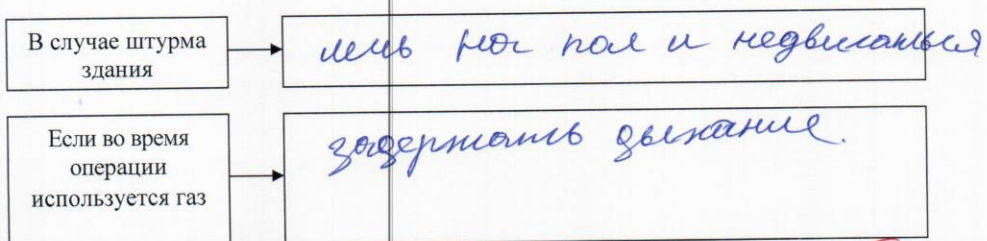 В случае штурма
здания
лечь на пол и недвигаться
Если во время
операции
используется газ
задержать дыхание.